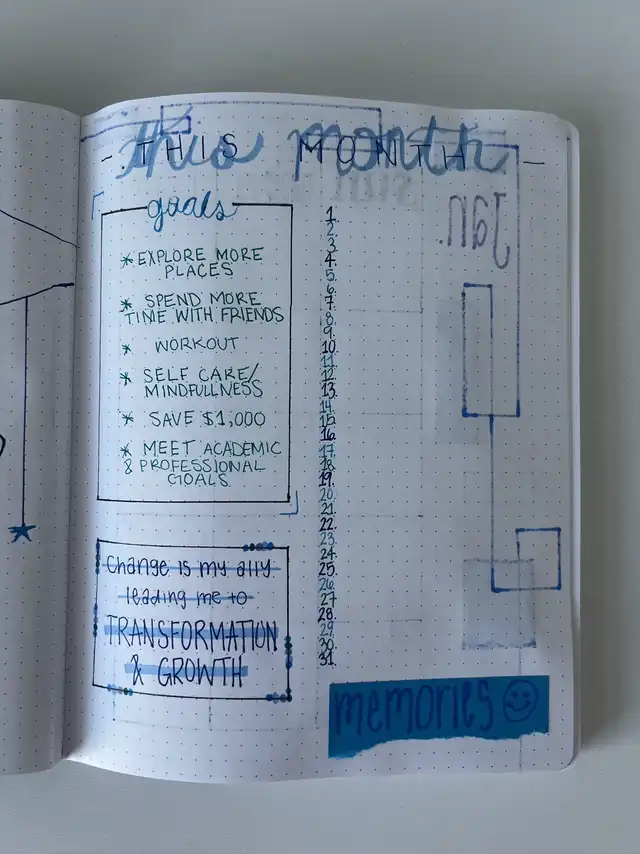 this month
- THIS MONTH -
goals
* EXPLORE MORE
PLACES
* SPEND MORE
TIME WITH FRIENDS
* WORKOUT
* SELF CARE/
MINDFULLNESS
* SAVE $1,000
* MEET ACADEMIC
& PROFESSIONAL
GOALS.
Change is my ally
leading me to
TRANSFORMATION
& GROWTH
1.
2.
3.
4.
5.
6.
7.
8.
9.
10.
11.
12.
13.
14.
15.
16.
17.
18.
19.
20.
21.
22.
23.
24.
25.
26.
27.
28.
29.
30.
31.
Jan.
memories